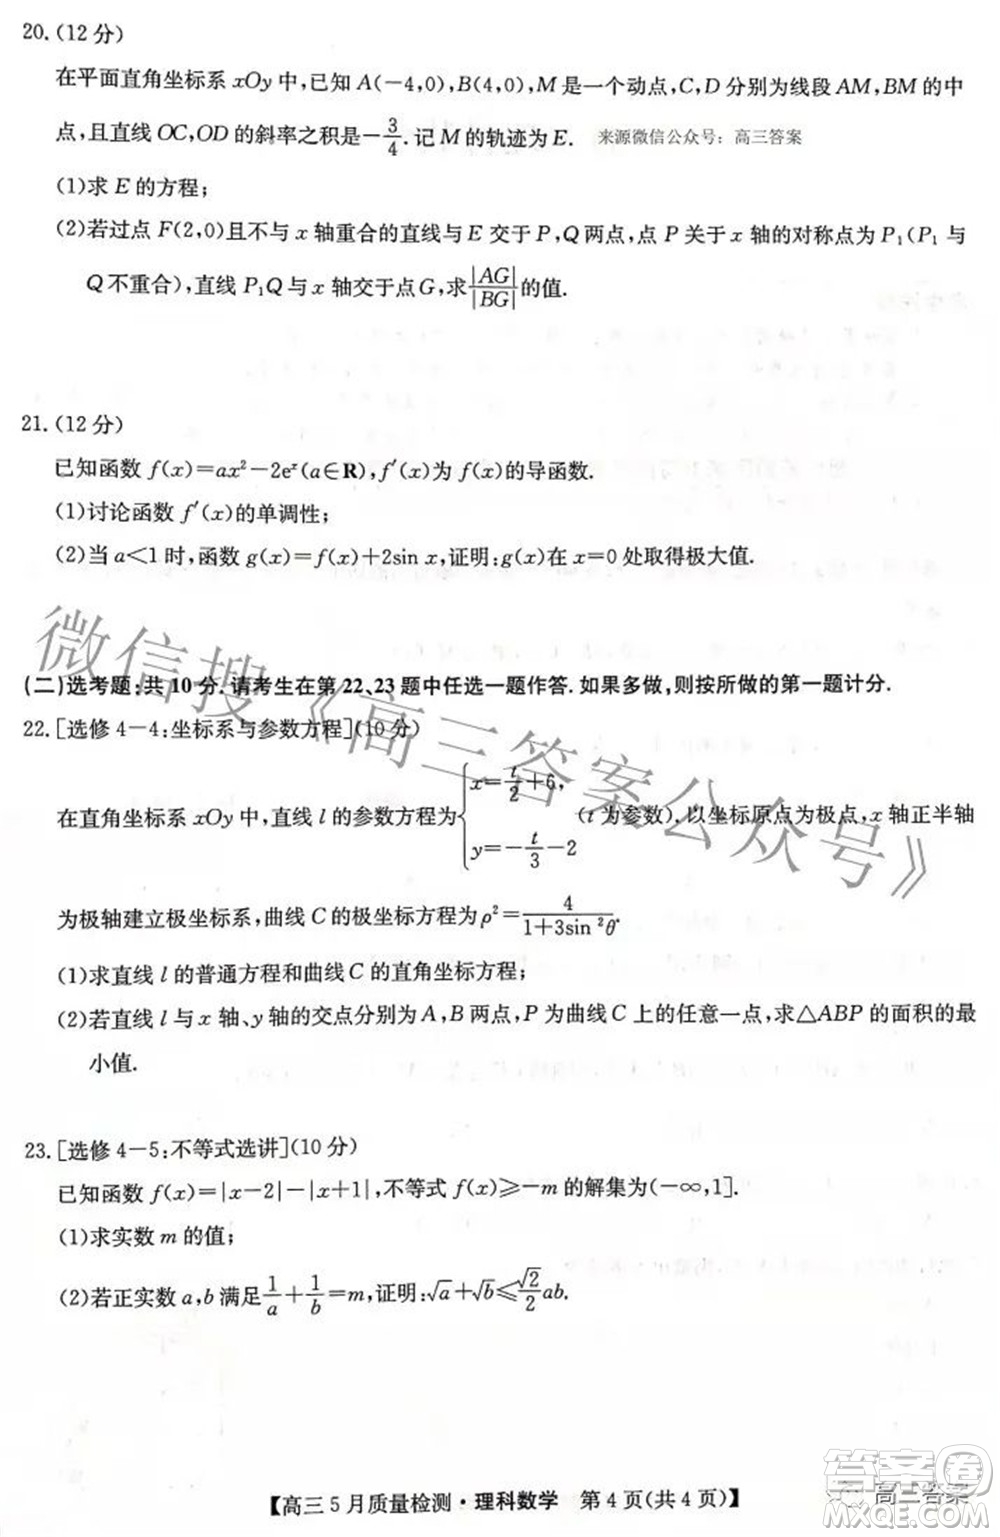 20.(12分)
在平面直角坐标系 xOy 中,已知 A(-4,0),B(4,0),M 是一个动点,C,D 分别为线段 AM,BM 的中
点,且直线 OC,OD 的斜率之积是-3/4.记 M 的轨迹为 E. 来源微信公众号:高三答案
(1)求 E 的方程;
(2)若过点 F(2,0)且不与 x 轴重合的直线与 E 交于 P,Q 两点,点 P 关于 x 轴的对称点为 P₁(P₁ 与
Q 不重合),直线 P₁Q 与 x 轴交于点 G,求|AG|/|BG|的值.
21.(12分)
已知函数 f(x)=ax²-2eˣ(a∈R),f′(x)为 f(x)的导函数.
(1)讨论函数 f′(x)的单调性;
(2)当 a<1 时,函数 g(x)=f(x)+2sin x,证明:g(x)在 x=0 处取得极大值.
微信搜《高三答案公众号》
(二)选考题:共10分.请考生在第22、23题中任选一题作答.如果多做,则按所做的第一题计分.
22.[选修4-4:坐标系与参数方程](10分)
在直角坐标系 xOy 中,直线 l 的参数方程为{x=t/2+6, y=-t/3-2 (t 为参数),以坐标原点为极点,x 轴正半轴
为极轴建立极坐标系,曲线 C 的极坐标方程为ρ²=4/(1+3sin²θ).
(1)求直线 l 的普通方程和曲线 C 的直角坐标方程;
(2)若直线 l 与 x 轴、y 轴的交点分别为 A,B 两点,P 为曲线 C 上的任意一点,求△ABP 的面积的最
小值.
23.[选修4-5:不等式选讲](10分)
已知函数 f(x)=|x-2|-|x+1|,不等式 f(x)≥-m 的解集为(-∞,1].
(1)求实数 m 的值;
(2)若正实数 a,b 满足1/a+1/b=m,证明:√a+√b≤√2/2ab.
【高三5月质量检测·理科数学 第4页(共4页)】
答案卷
高三答案